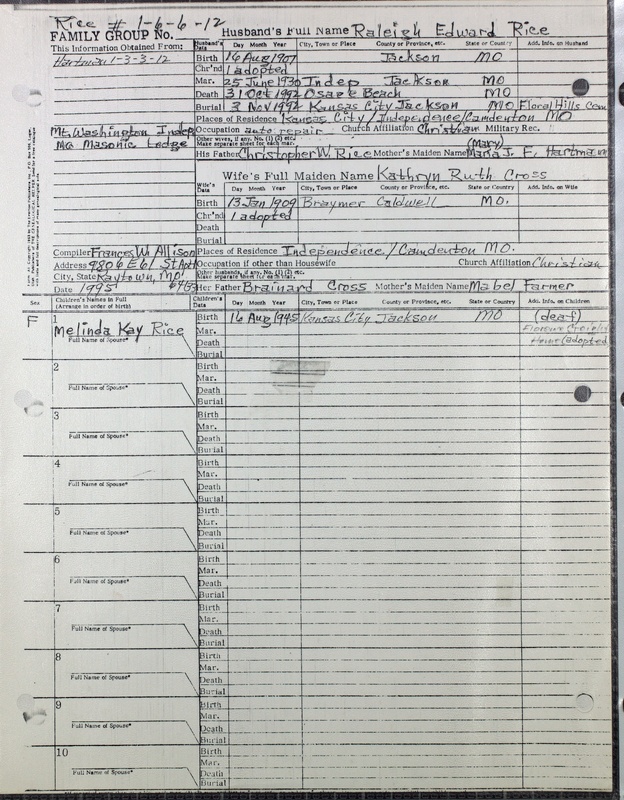 Rice # 1-6-6-12
FAMILY GROUP No. Husband's Full Name Raleigh Edward Rice
This Information Obtained From: Husband's Data Day Month Year City, Town or Place County or Province, etc. State or Country Add. Info. on Husband
Hartman 1-3-3-12 Birth 16 Aug 1907 Jackson MO
Chr'nd 1 adopted
Mar. 25 June 1930 Indep Jackson MO
Death 31 Oct 1992 Osage Beach MO
Burial 3 Nov 1992 Kansas City Jackson MO Floral Hills Cem
Places of Residence Kansas City / Independence / Camdenton MO
Mt. Washington Indep Occupation auto repair Church Affiliation Christian Military Rec.
MO Masonic Lodge Other wives, if any. No. (1) (2) etc. Make separate sheet for each mar.
His Father Christopher W. Rice Mother's Maiden Name (Mary) Maria J. F. Hartman
Wife's Full Maiden Name Kathryn Ruth Cross
Wife's Data Day Month Year City, Town or Place County or Province, etc. State or Country Add. Info. on Wife
Birth 13 Jan 1909 Braymer Caldwell MO.
Chr'nd 1 adopted
Death
Burial
Compiler Frances W. Allison Places of Residence Independence / Camdenton MO.
Address 9806 E 61 St Apt Occupation if other than Housewife Church Affiliation Christian
City, State Raytown, MO Other husbands, if any. No. (1) (2) etc. Make separate sheet for each mar.
Date 1995 Her Father Brainard Cross Mother's Maiden Name Mabel Farmer
Sex Children's Names in Full (Arrange in order of birth) Children's Data Day Month Year City, Town or Place County or Province, etc. State or Country Add. Info. on Children
F 1 Birth 16 Aug 1945 Kansas City Jackson MO (deaf)
Melinda Kay Rice Mar. Florence
Full Name of Spouse* Death Home (adopted
Burial
2 Birth
Mar.
Full Name of Spouse* Death
Burial
3 Birth
Mar.
Full Name of Spouse* Death
Burial
4 Birth
Mar.
Full Name of Spouse* Death
Burial
5 Birth
Mar.
Full Name of Spouse* Death
Burial
6 Birth
Mar.
Full Name of Spouse* Death
Burial
7 Birth
Mar.
Full Name of Spouse* Death
Burial
8 Birth
Mar.
Full Name of Spouse* Death
Burial
9 Birth
Mar.
Full Name of Spouse* Death
Burial
10 Birth
Mar.
Full Name of Spouse* Death
Burial